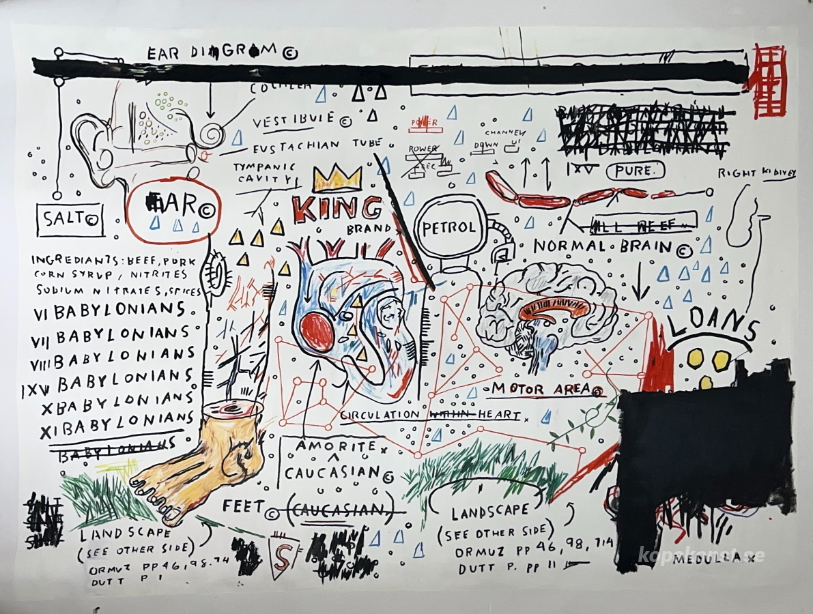 EAR DIAGRAM ©
COCHLEA
VESTIBULE ©
EUSTACHIAN TUBE
TYMPANIC
CAVITY
POWER
POWER
CHANNEL VI
DOWN
IXV PURE.
RIGHT KIDNEY
SALT©
EAR©
KING
BRAND
PETROL
ALL BEEF
NORMAL BRAIN ©
INGREDIANTS: BEEF, PORK
CORN SYRUP, NITRITES
SODIUM NITRATES, SPICES
VI BABYLONIANS.
VII BABYLONIANS.
VIII BABYLONIANS.
IXV BABYLONIANS.
X BABYLONIANS.
XI BABYLONIANS
BABYLONIANS
LOANS
MOTOR AREA©
CIRCULATION WITHIN HEART.
AMORITE x
CAUCASIAN ©
FEET © (CAUCASIAN)
LANDSCAPE
(SEE OTHER SIDE)
ORMUZ PP 46, 98, 74
DUTT P 1
S
LANDSCAPE
(SEE OTHER SIDE)
ORMUZ PP 46, 98, 714
DUTT P. PP 11
MEDULLA x
kopakonst.se